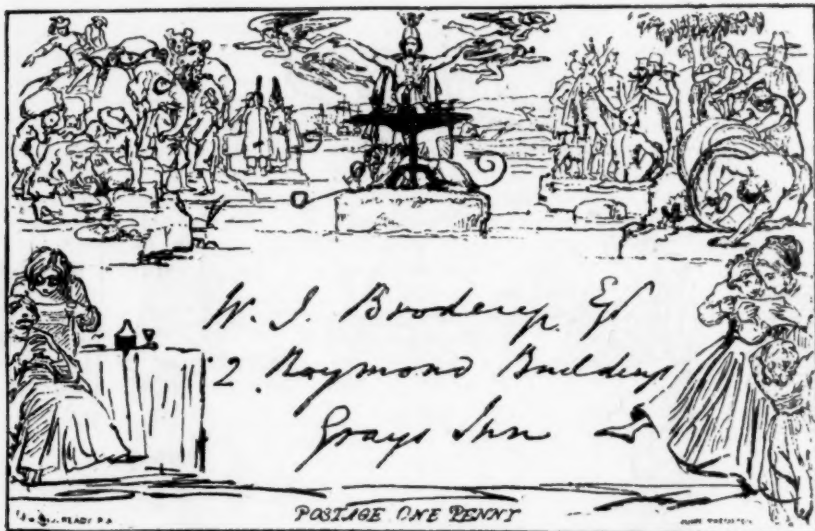 W. J. Broderip Esq
2 Raymond Buildings
Grays Inn
POSTAGE ONE PENNY